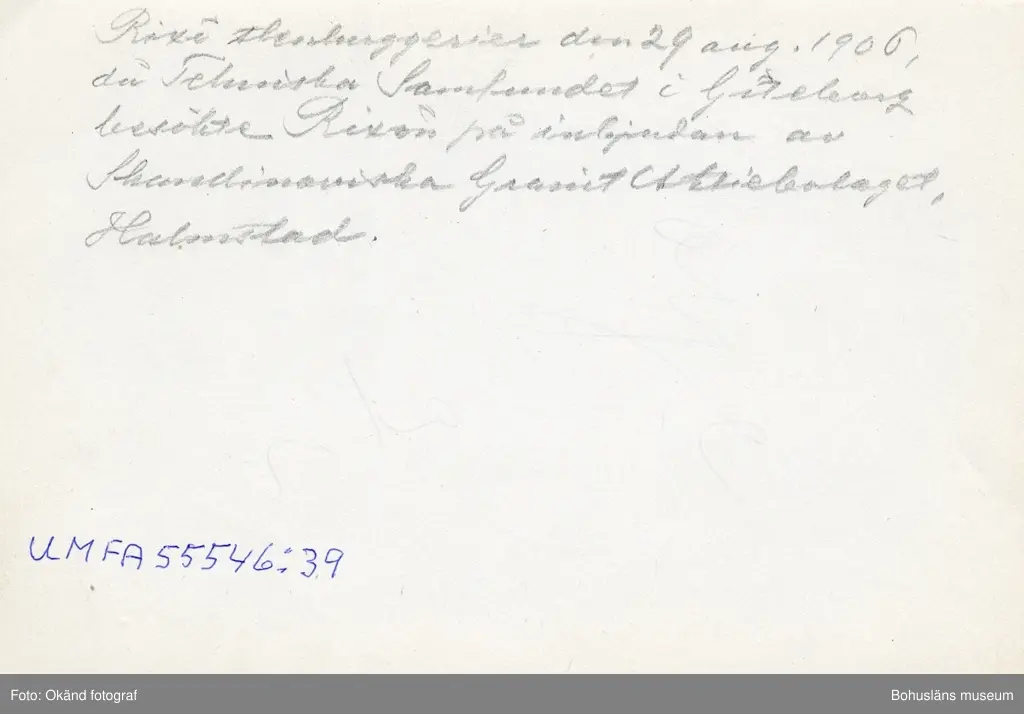 Rixö stenhuggerier den 29 aug. 1906,
då Tekniska Samfundet i Göteborg
besökte Rixön på inbjudan av
Skandinaviska Granit Aktiebolaget,
Halmstad.
UMFA55546:39
Foto: Okänd fotograf
Bohusläns museum